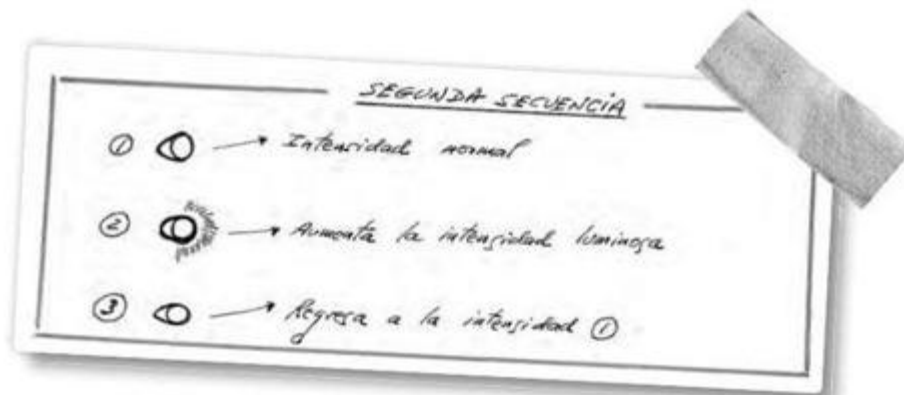 SEGUNDA SECUENCIA
① → Intensidad normal
② → Aumenta la intensidad luminosa
③ → Regresa a la intensidad ①